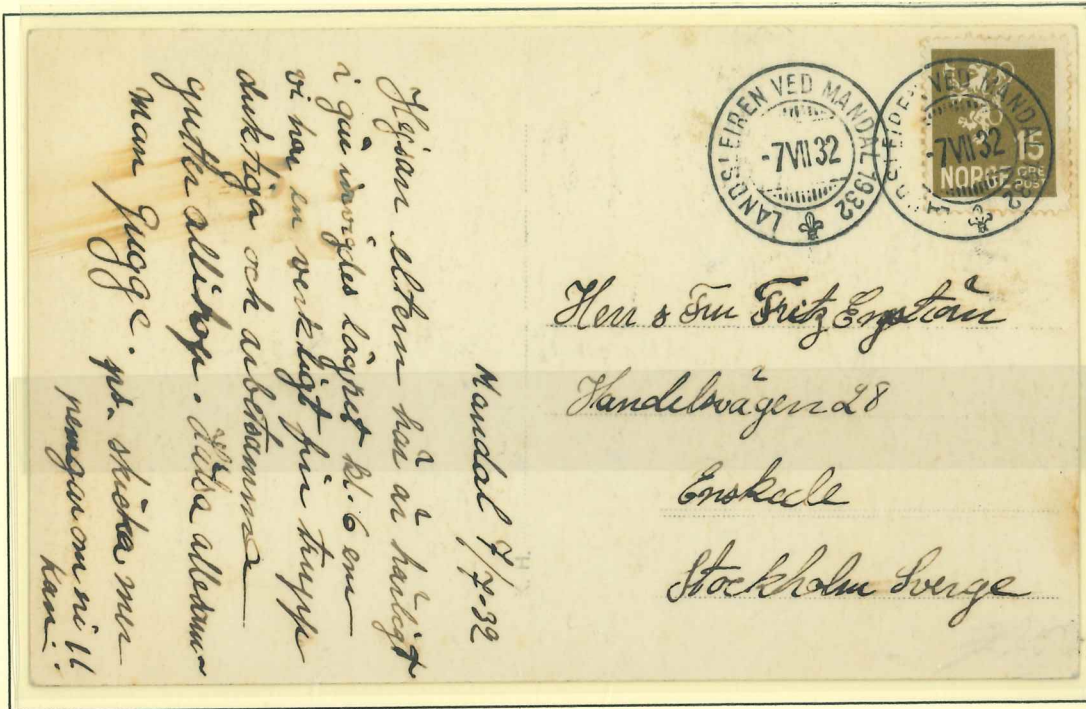 LANDSLEIREN VED MANDAL 1932
-7 VII 32
LANDSLEIREN VED MANDAL 1932
-7 VII 32
15
ØRE
POST
NORGE
Herr & Fru Fritz Engström
Handelsvägen 28
Enskede
Stockholm Sverge
Mandal 7/7-32
Hejsan här är härligt
i går invigdes lägret kl. 6 em
vi har en verkligt fin trupp
duktiga och arbetsamma
gutter allihop. Hälsa allesam-
man Gugge. ps. skicka mer
pengar om ni
kan!!